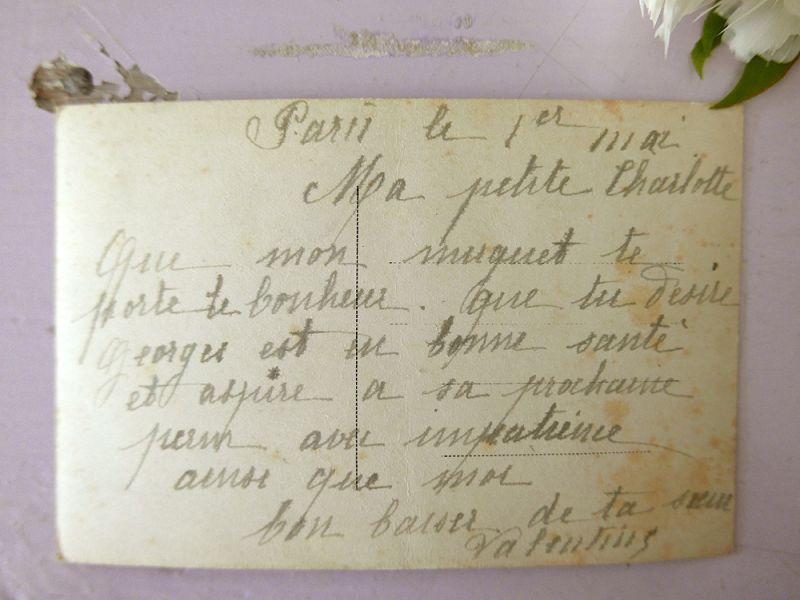 Paris le 1er mai
Ma petite Charlotte
Que mon muguet te
porte le bonheur. que tu desire
Georges est en bonne santé
et aspire a sa prochaine
perm avec impatience
ainsi que moi
bon baiser de ta sœur
Valentine